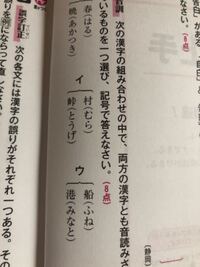 音訓
次の漢字の組み合わせの中で、両方の漢字とも音読みさ
いるものを一つ選び、記号で答えなさい。(8点)
春(はる)
暁(あかつき)
イ
村(むら)
峠(とうげ)
ウ
船(ふね)
港(みなと)
(静岡)
次の各文には漢字の誤りがそれぞれ一つある。その
にならって直しなさい。